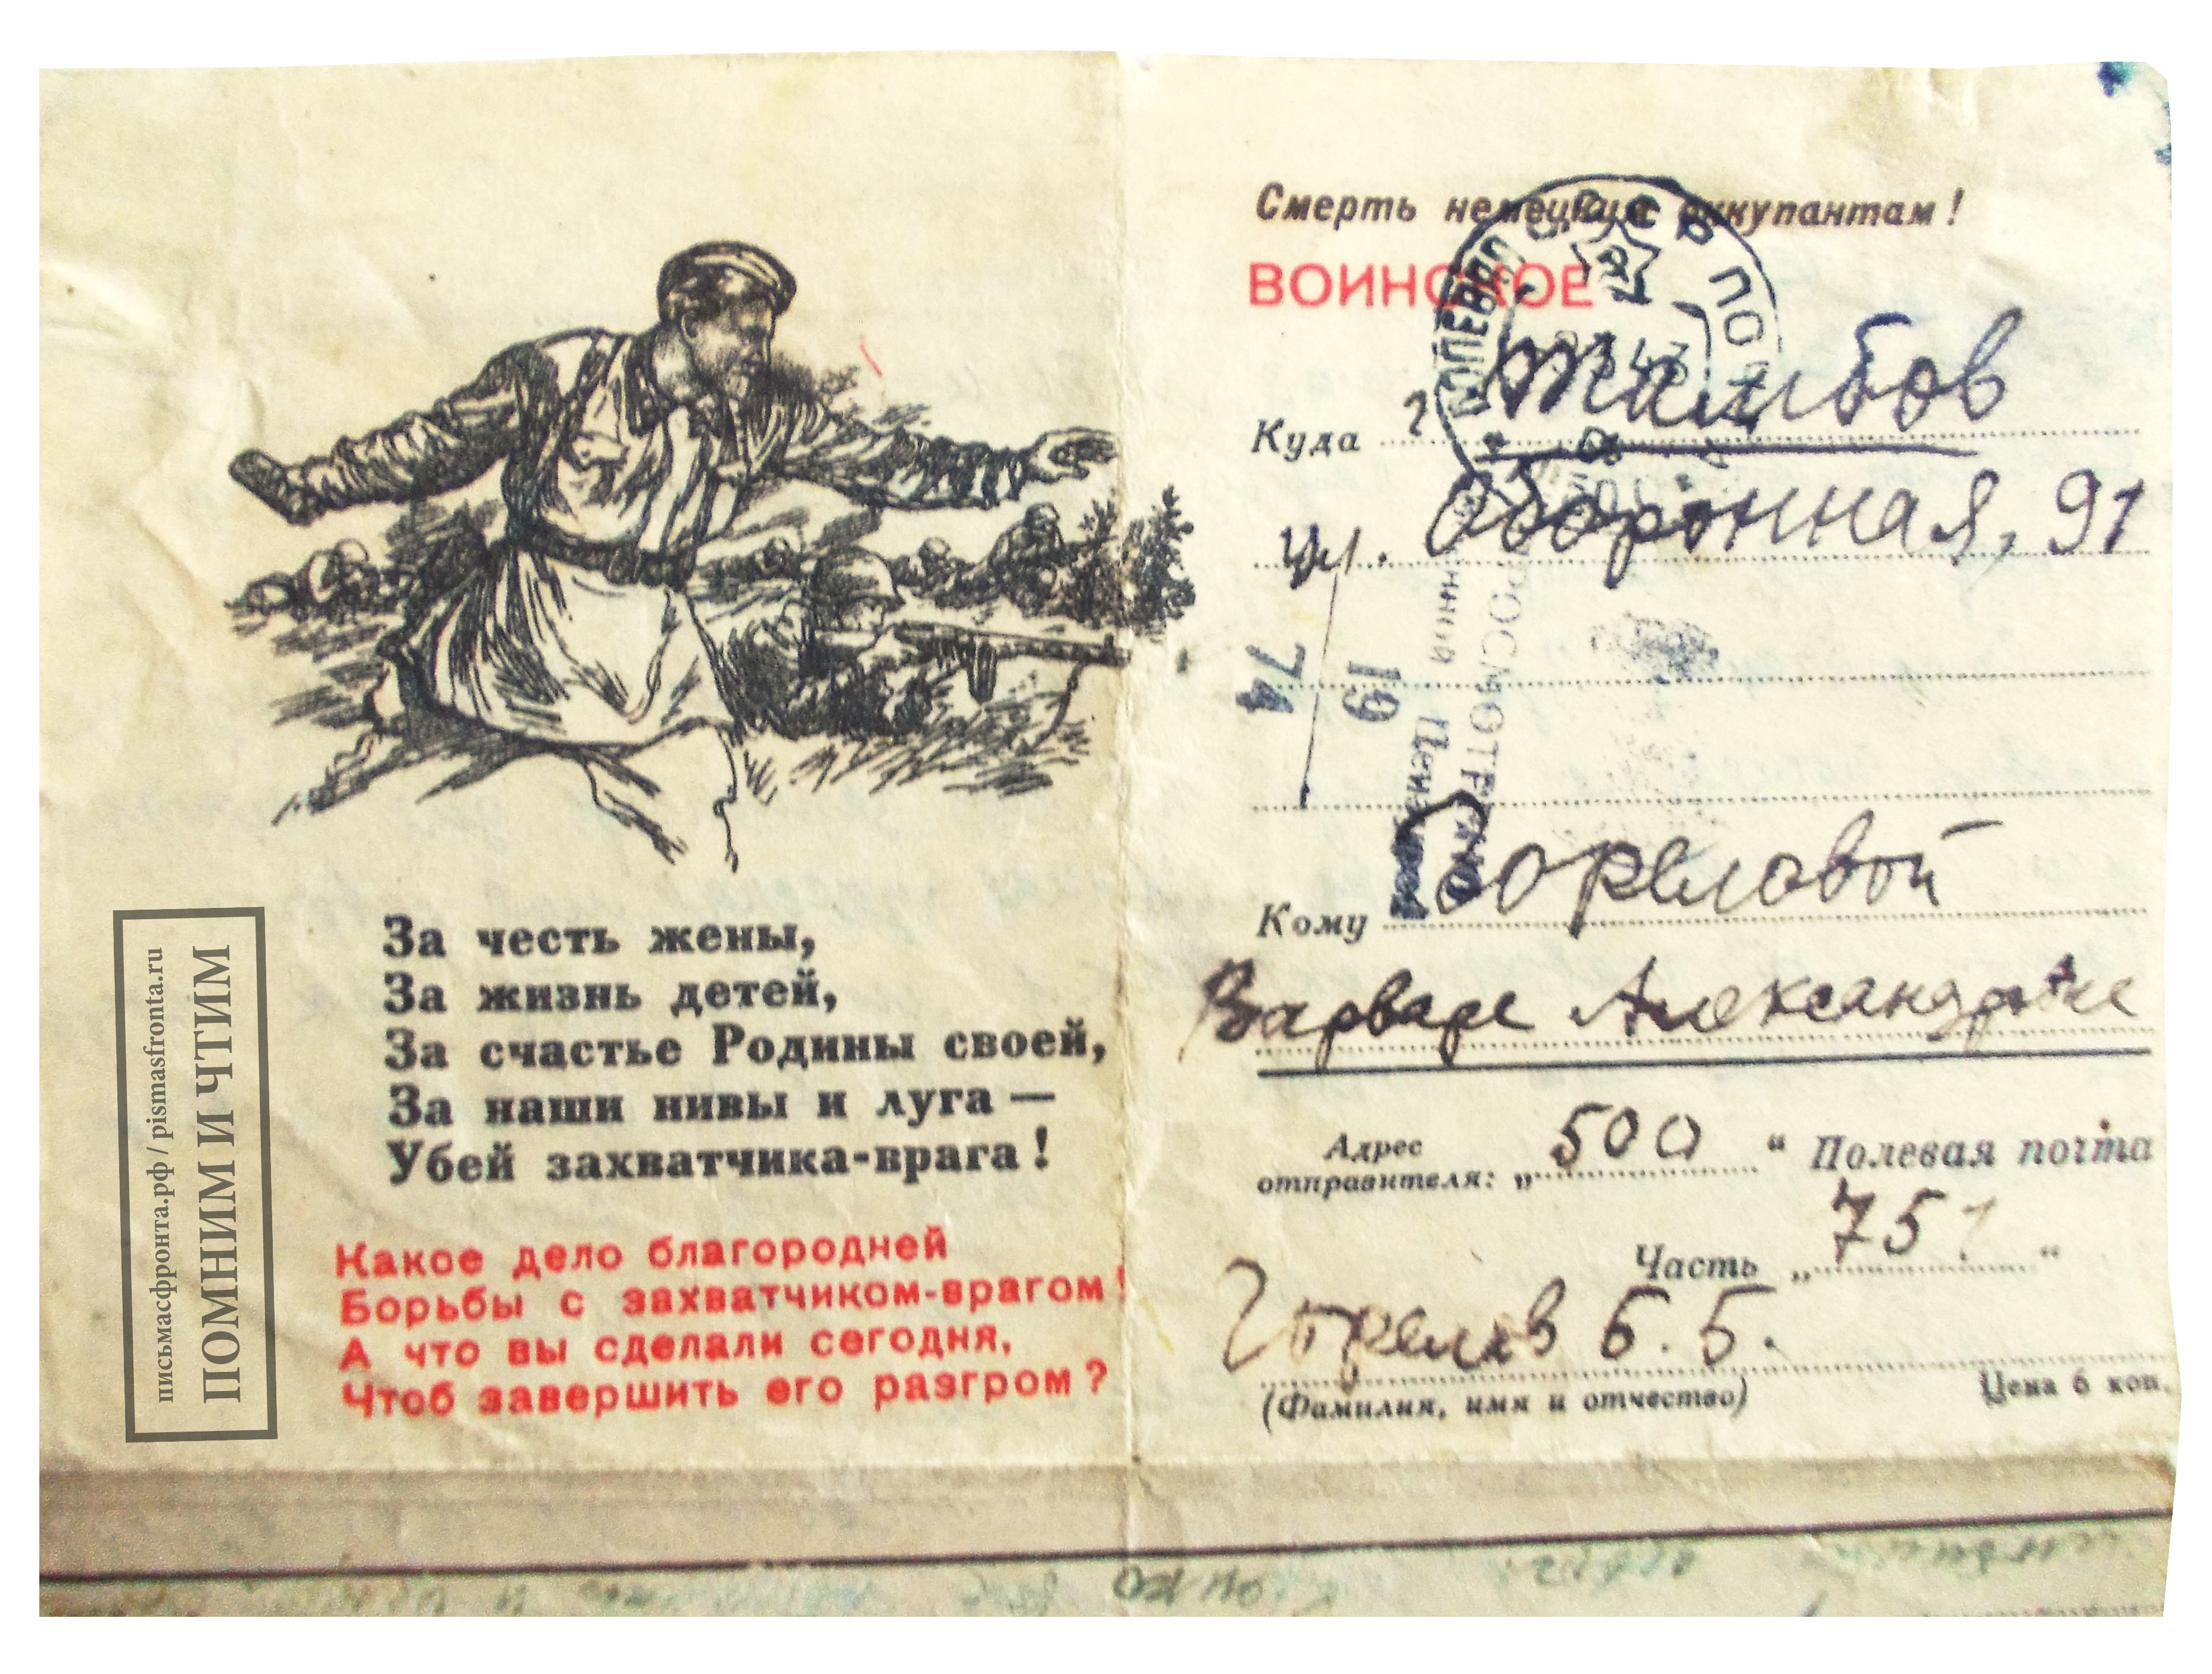 письмасфронта.рф / pismasfronta.ru
ПОМНИМ И ЧТИМ
За честь жены,
За жизнь детей,
За счастье Родины своей,
За наши нивы и луга —
Убей захватчика-врага!
Какое дело благородней
Борьбы с захватчиком-врагом!
А что вы сделали сегодня,
Чтоб завершить его разгром?
Смерть немецким оккупантам!
ВОИНСКОЕ
Куда г. Тамбов
ул. Оборонная, 91
19
74
ПРОСМОТРЕНО
Кому Гореловой
Варваре Александровне
Адрес отправителя: „500“ Полевая почта
Часть „751“
Горелов Б. Б.
(Фамилия, имя и отчество)
Цена 6 коп.